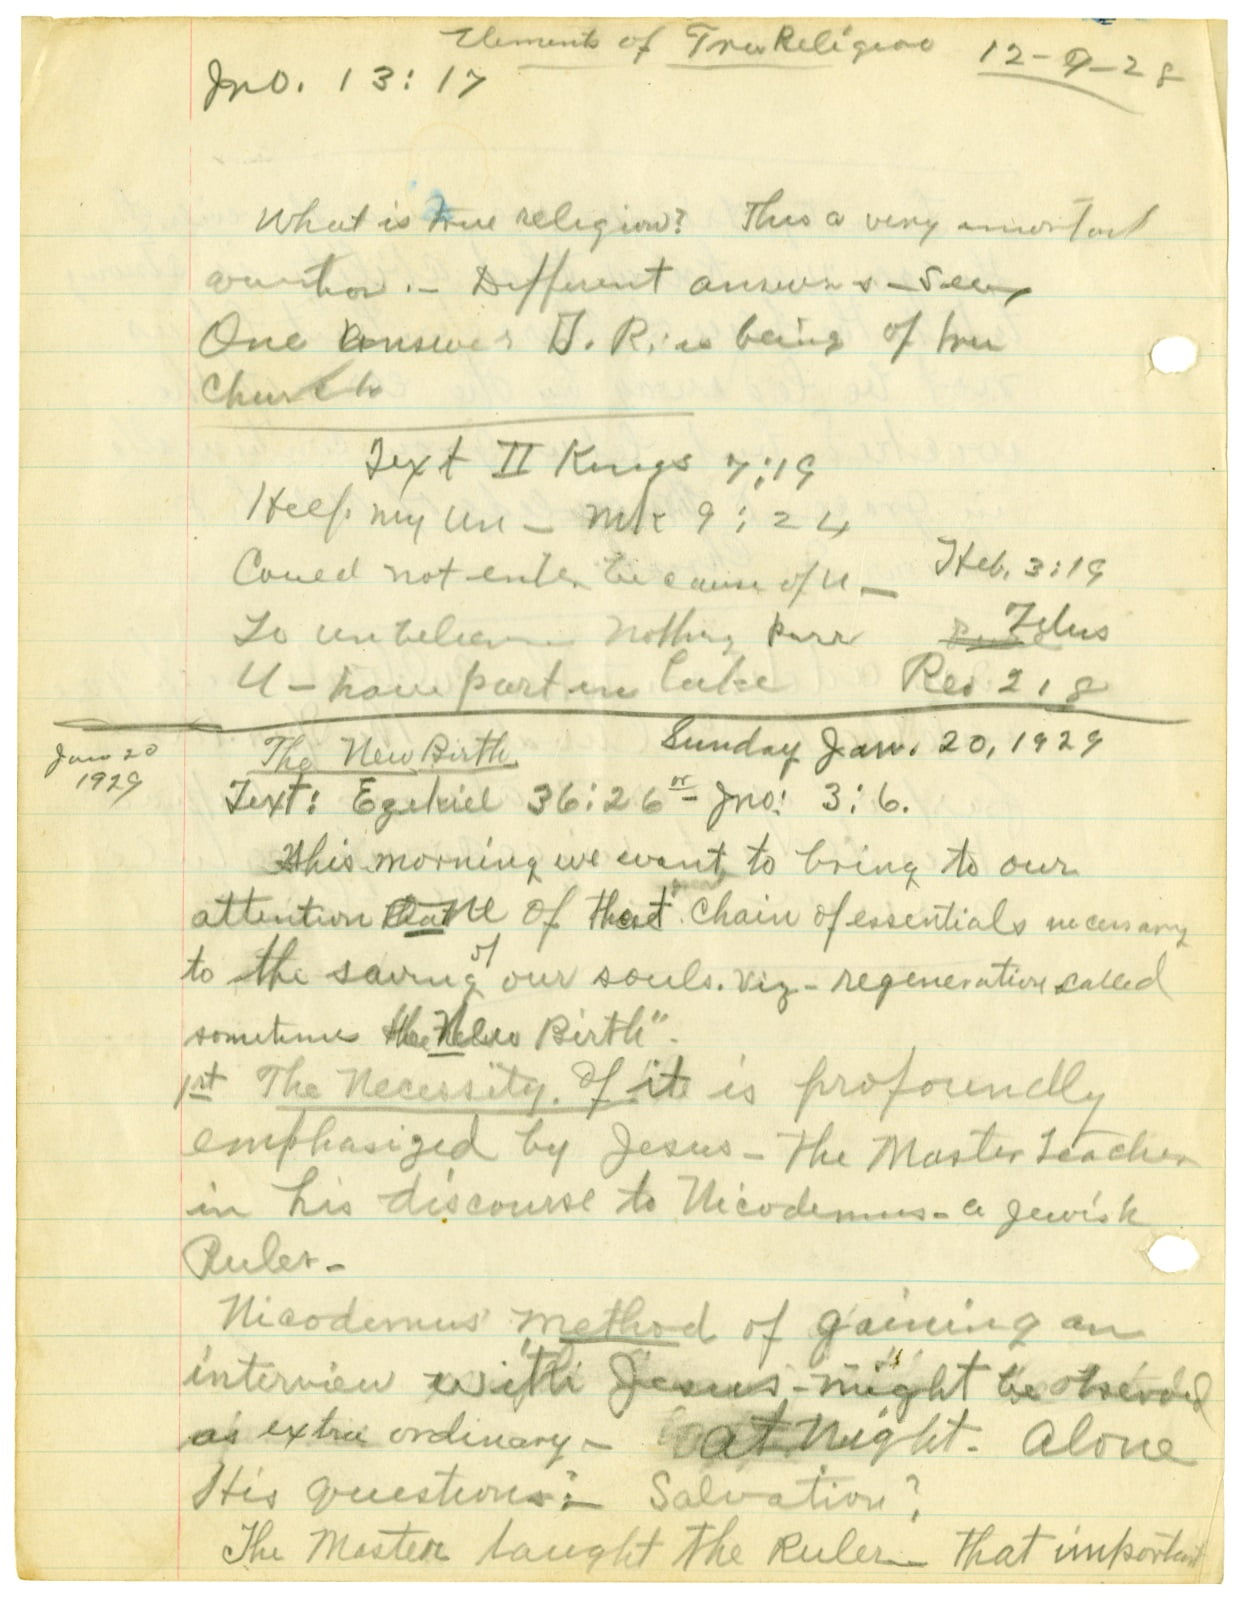 Elements of True Religion 12-9-28
Jno. 13:17
What is true religion? This a very important
question.- Different answers -
One answer T. R. is being of true
Church
Text II Kings 7:19
Help my Un - Mk 9:24
Could not enter because of U - Heb. 3:19
To unbeliev nothing pure Titus
U - have part in lake Rev 21,8
Jan 20
1929
The New Birth Sunday Jan. 20, 1929
Text: Ezekiel 36:26 or Jno: 3:6.
This morning we want to bring to our
attention one of that chain of essentials necessary
to the saving of our souls. viz - regeneration called
sometimes the New Birth".
1st The Necessity. Of it is profoundly
emphasized by Jesus - the Master Teacher
in his discourse to Nicodemus - a Jewish
Ruler-
Nicodemus' method of gaining an
interview with Jesus - might be observed
as extra ordinary - at night. Alone
His questions:- Salvation?
The Master taught the Ruler - that important